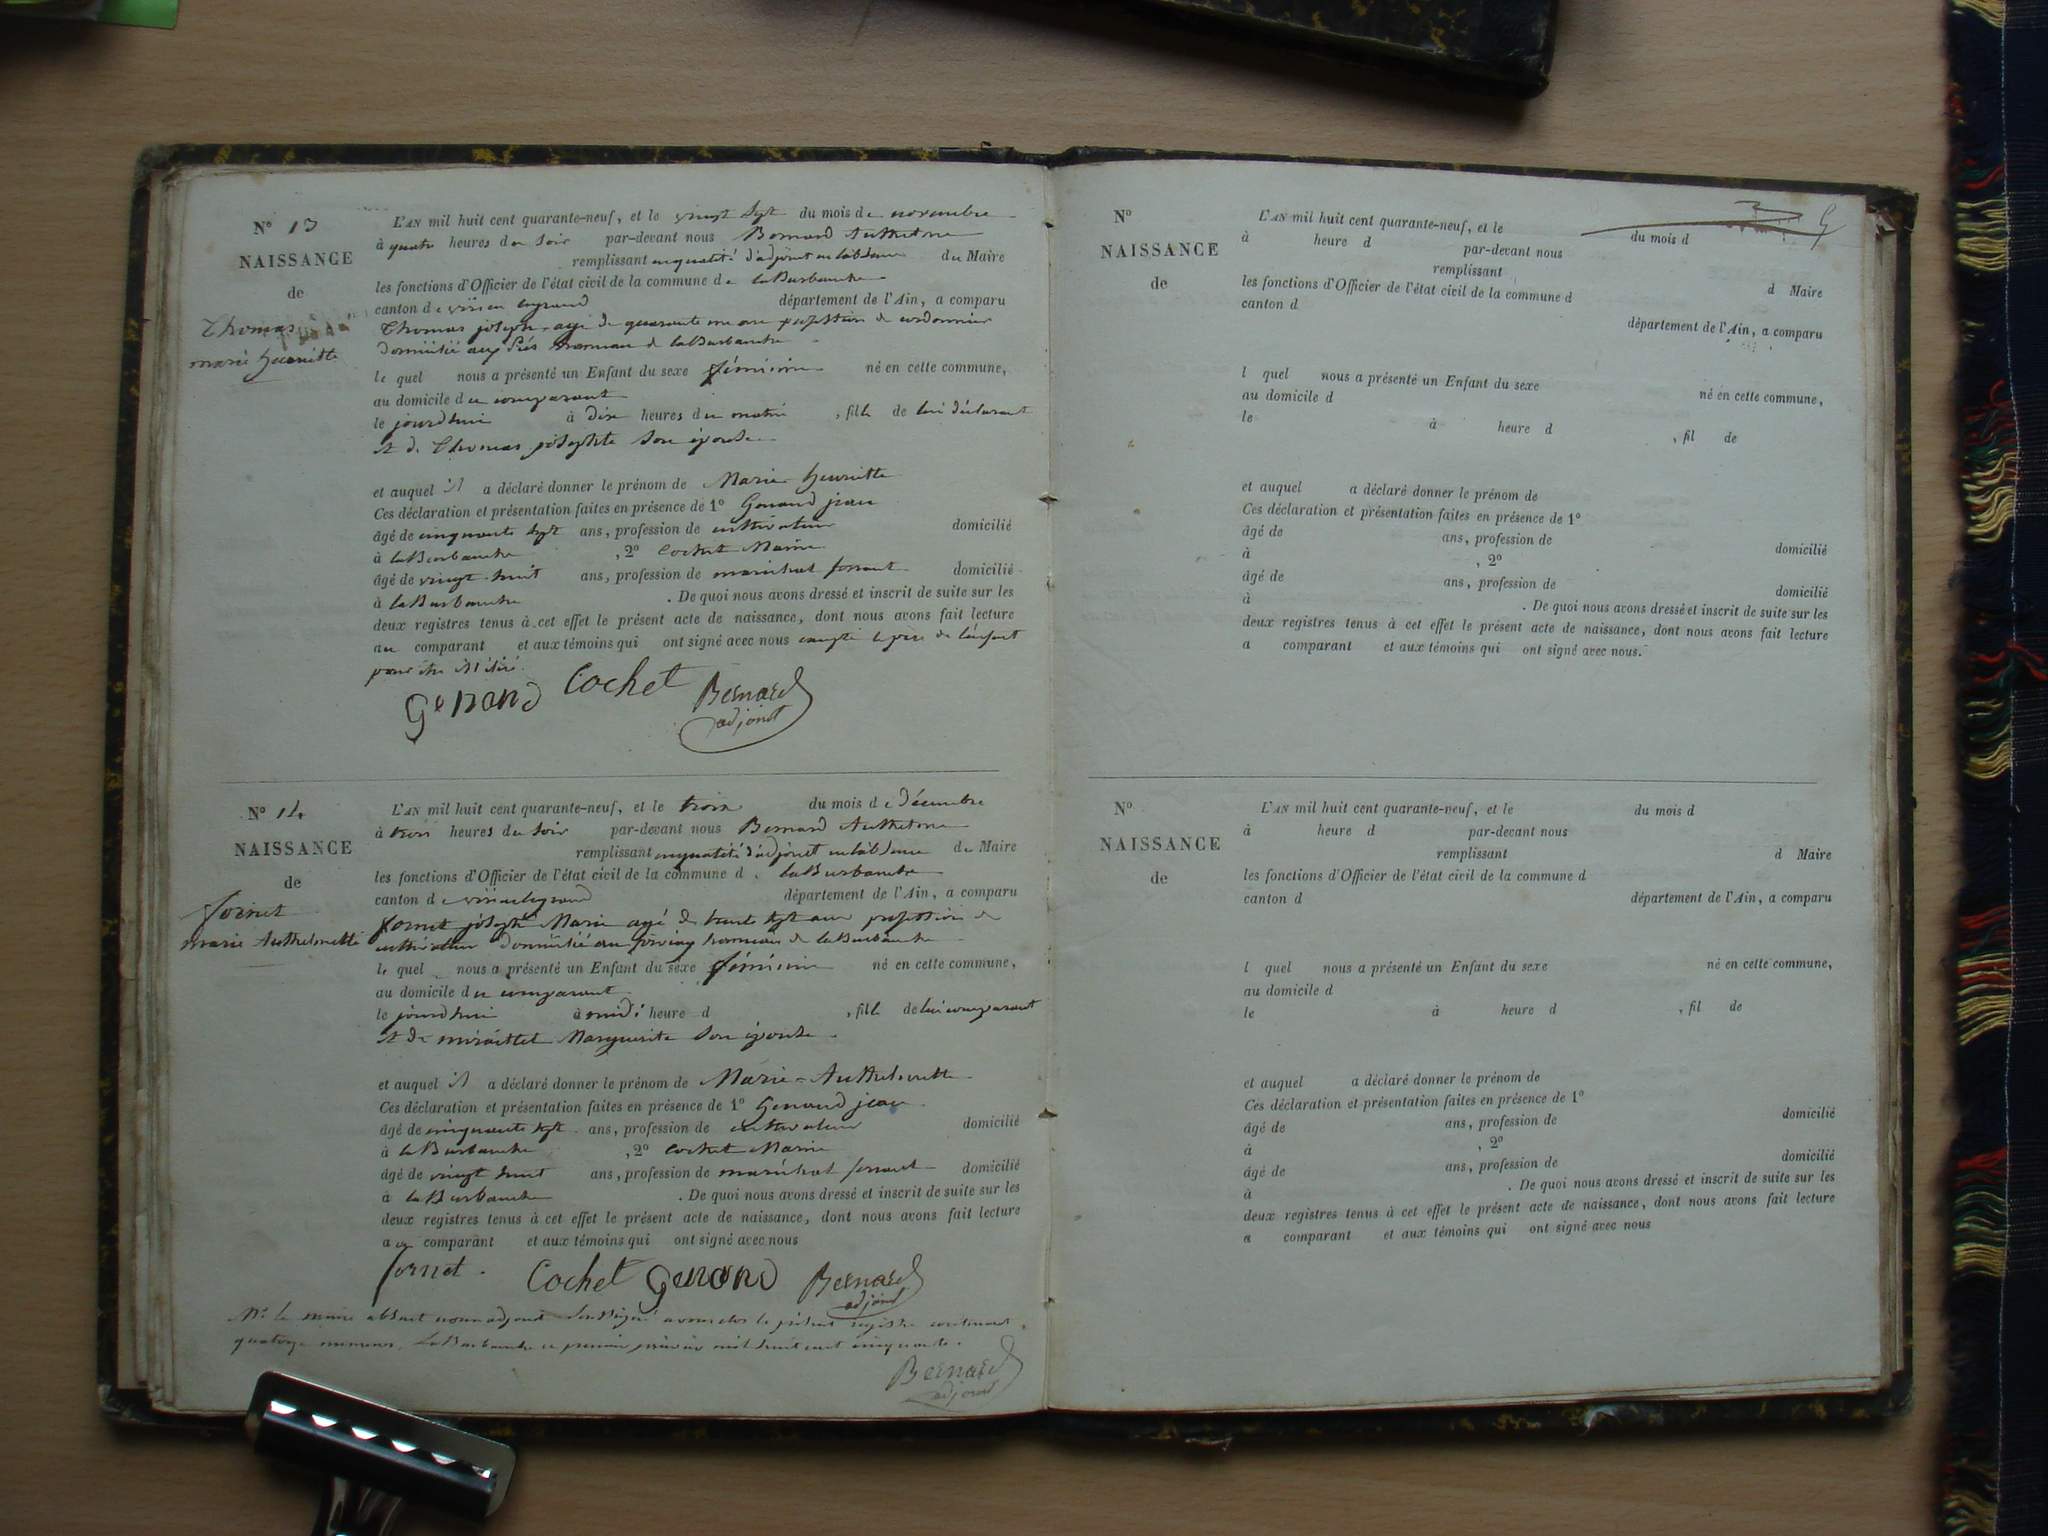 N° 13
NAISSANCE
de
Thomas
marie henriette
L'AN mil huit cent quarante-neuf, et le vingt sept du mois de novembre
à quatre heures du soir par-devant nous Bernard Anthelme
remplissant en qualité d'adjoint en l'absence du Maire
les fonctions d'Officier de l'état civil de la commune de la Burbanche
canton de virieu le grand département de l'Ain, a comparu
Thomas joseph agé de quarante un ans profession de cordonnier
domicilié hameau de la Burbanche
le quel nous a présenté un Enfant du sexe féminin né en cette commune,
au domicile du comparant
le jourdhui à dix heures du matin, fille de lui déclarant
et de Thomas josephte son épouse
et auquel il a déclaré donner le prénom de Marie henriette
Ces déclaration et présentation faites en présence de 1° Genand jean
âgé de cinquante sept ans, profession de cultivateur domicilié
à la Burbanche, 2° Cochet Marin
âgé de vingt huit ans, profession de maréchal ferrant domicilié
à la Burbanche. De quoi nous avons dressé et inscrit de suite sur les
deux registres tenus à cet effet le présent acte de naissance, dont nous avons fait lecture
au comparant et aux témoins qui ont signé avec nous excepté le père de l'enfant
pour être illitéré.
Genand Cochet Bernard
adjoint
N° 14
NAISSANCE
de
fornet
marie Anthelmette
L'AN mil huit cent quarante-neuf, et le trois du mois de décembre
à trois heures du soir par-devant nous Bernard Anthelme
remplissant en qualité d'adjoint en l'absence du Maire
les fonctions d'Officier de l'état civil de la commune d. la Burbanche
canton de virieu le grand département de l'Ain, a comparu
fornet joseph Marie agé de trente sept ans profession de
cultivateur domicilié au hameau de la Burbanche
le quel nous a présenté un Enfant du sexe féminin né en cette commune,
au domicile du comparant
le jourdhui à midi heure d , fille de lui comparant
et de Marguerite son épouse.
et auquel il a déclaré donner le prénom de Marie-Anthelmette
Ces déclaration et présentation faites en présence de 1° Genand jean
âgé de cinquante sept ans, profession de cultivateur domicilié
à la Burbanche, 2° Cochet Marin
âgé de vingt huit ans, profession de maréchal ferrant domicilié
à la Burbanche. De quoi nous avons dressé et inscrit de suite sur les
deux registres tenus à cet effet le présent acte de naissance, dont nous avons fait lecture
au comparant et aux témoins qui ont signé avec nous
fornet. Cochet Genand Bernard
adjoint
Mr le maire absent nous adjoint soussigné avons clos le présent registre contenant
quatorze numéros, La Burbanche ce premier janvier mil huit cent cinquante.
Bernard
adjoint
N°
NAISSANCE
de
L'AN mil huit cent quarante-neuf, et le du mois d
à heure d par-devant nous
remplissant d Maire
les fonctions d'Officier de l'état civil de la commune d
canton d département de l'Ain, a comparu
l quel nous a présenté un Enfant du sexe né en cette commune,
au domicile d
le à heure d , fil de
et auquel a déclaré donner le prénom de
Ces déclaration et présentation faites en présence de 1°
âgé de ans, profession de domicilié
à , 2°
âgé de ans, profession de domicilié
à . De quoi nous avons dressé et inscrit de suite sur les
deux registres tenus à cet effet le présent acte de naissance, dont nous avons fait lecture
a comparant et aux témoins qui ont signé avec nous.
N°
NAISSANCE
de
L'AN mil huit cent quarante-neuf, et le du mois d
à heure d par-devant nous
remplissant d Maire
les fonctions d'Officier de l'état civil de la commune d
canton d département de l'Ain, a comparu
l quel nous a présenté un Enfant du sexe né en cette commune,
au domicile d
le à heure d , fil de
et auquel a déclaré donner le prénom de
Ces déclaration et présentation faites en présence de 1°
âgé de ans, profession de domicilié
à , 2°
âgé de ans, profession de domicilié
à . De quoi nous avons dressé et inscrit de suite sur les
deux registres tenus à cet effet le présent acte de naissance, dont nous avons fait lecture
a comparant et aux témoins qui ont signé avec nous